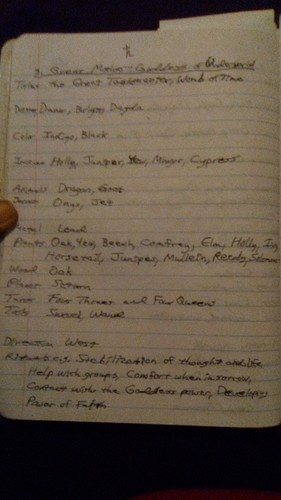 ♄
3. Binah Mother - Goddess of Underworld
Titles the Great Taskmaster, Womb of Time
Danu, Brigit, Dagda
Color Indigo, Black
Incense Holly, Juniper, Yew, Myrrh, Cypress
Animals Dragon, Goat
Onyx, Jet
Metal Lead
Plants Oak, Yew, Beech, Comfrey, Elm, Holly, Ivy,
Horsetail, Juniper, Mullein, Reeds,
Wood Oak
Planet Saturn
Tarot Four Threes and Four Queens
Tools Sword, Wand
Direction West
Rituals Stabilization of thought and life
Help with groups, Comfort when in sorrow,
Contact with the Goddess power, Developing
Power of Faith